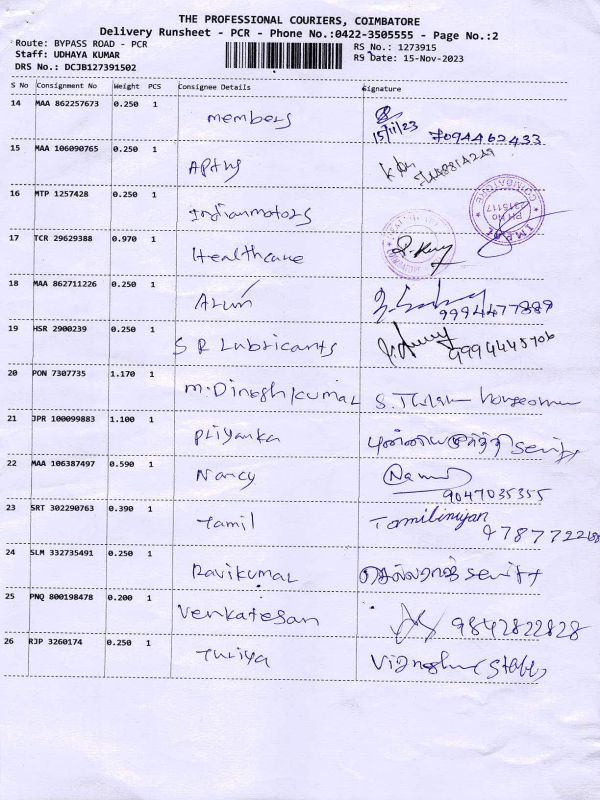 THE PROFESSIONAL COURIERS, COIMBATORE
Delivery Runsheet - PCR - Phone No.:0422-3505555 - Page No.:2
Route: BYPASS ROAD - PCR
RS No.: 1273915
Staff: UDHAYA KUMAR
RS Date: 15-Nov-2023
DRS No.: DCJB127391502
S No Consignment No Weight PCS Consignee Details Signature
14 MAA 862257673 0.250 1 members 15/11/23 7094462433
15 MAA 106090765 0.250 1
16 MTP 1257428 0.250 1 Indianmotors
COIMBATORE
17 TCR 29629388 0.970 1 Healthcare
18 MAA 862711226 0.250 1 Arun 9994477889
19 HSR 2900239 0.250 1 S R Lubricants 9994445706
20 PON 7307735 1.170 1 M.Dineshkumar
21 JPR 100099883 1.100 1 Priyanka
22 MAA 106387497 0.590 1 Nancy 9047035355
23 SRT 302290763 0.390 1 Tamil Tamiliniyan
24 SLM 332735491 0.250 1 Ravikumar
25 PNQ 800198478 0.200 1 Venkatesan 9842822828
26 RJP 3260174 0.250 1 Turiya (Staff)